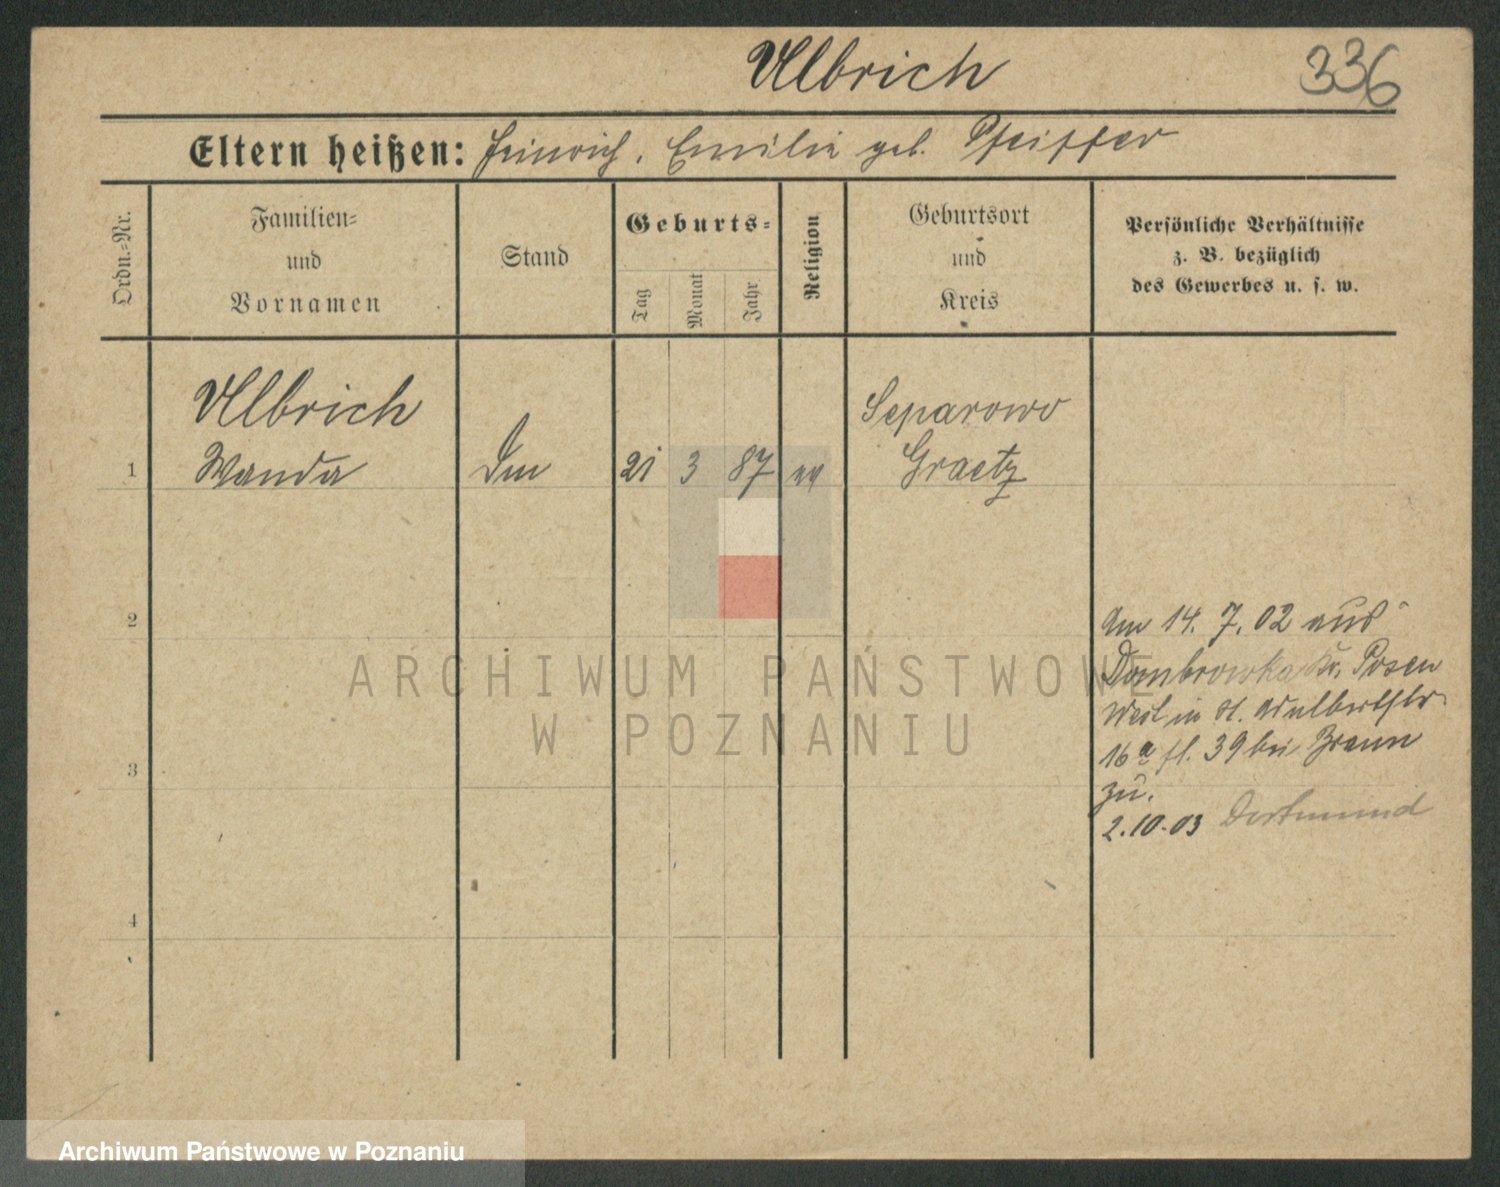 Ulbrich
336
Eltern heißen: Heinrich, Emilie geb. Pfeiffer
Ordn.-Nr.
Familien-
und
Vornamen
Stand
Geburts-
Tag
Monat
Jahr
Religion
Geburtsort
und
Kreis
Persönliche Verhältnisse
z. B. bezüglich
des Gewerbes u. s. w.
Ulbrich
Separowo
1 Wanda 21 3 87 Graetz
2
Am 14. 7. 02 aus
Dombrowka Kr. Posen
West in St. Adalbertstr
3
16a fl. 39 bei Braun
zu.
2.10.03 Dortmund
4
ARCHIWUM PAŃSTWOWE
W POZNANIU
Archiwum Państwowe w Poznaniu